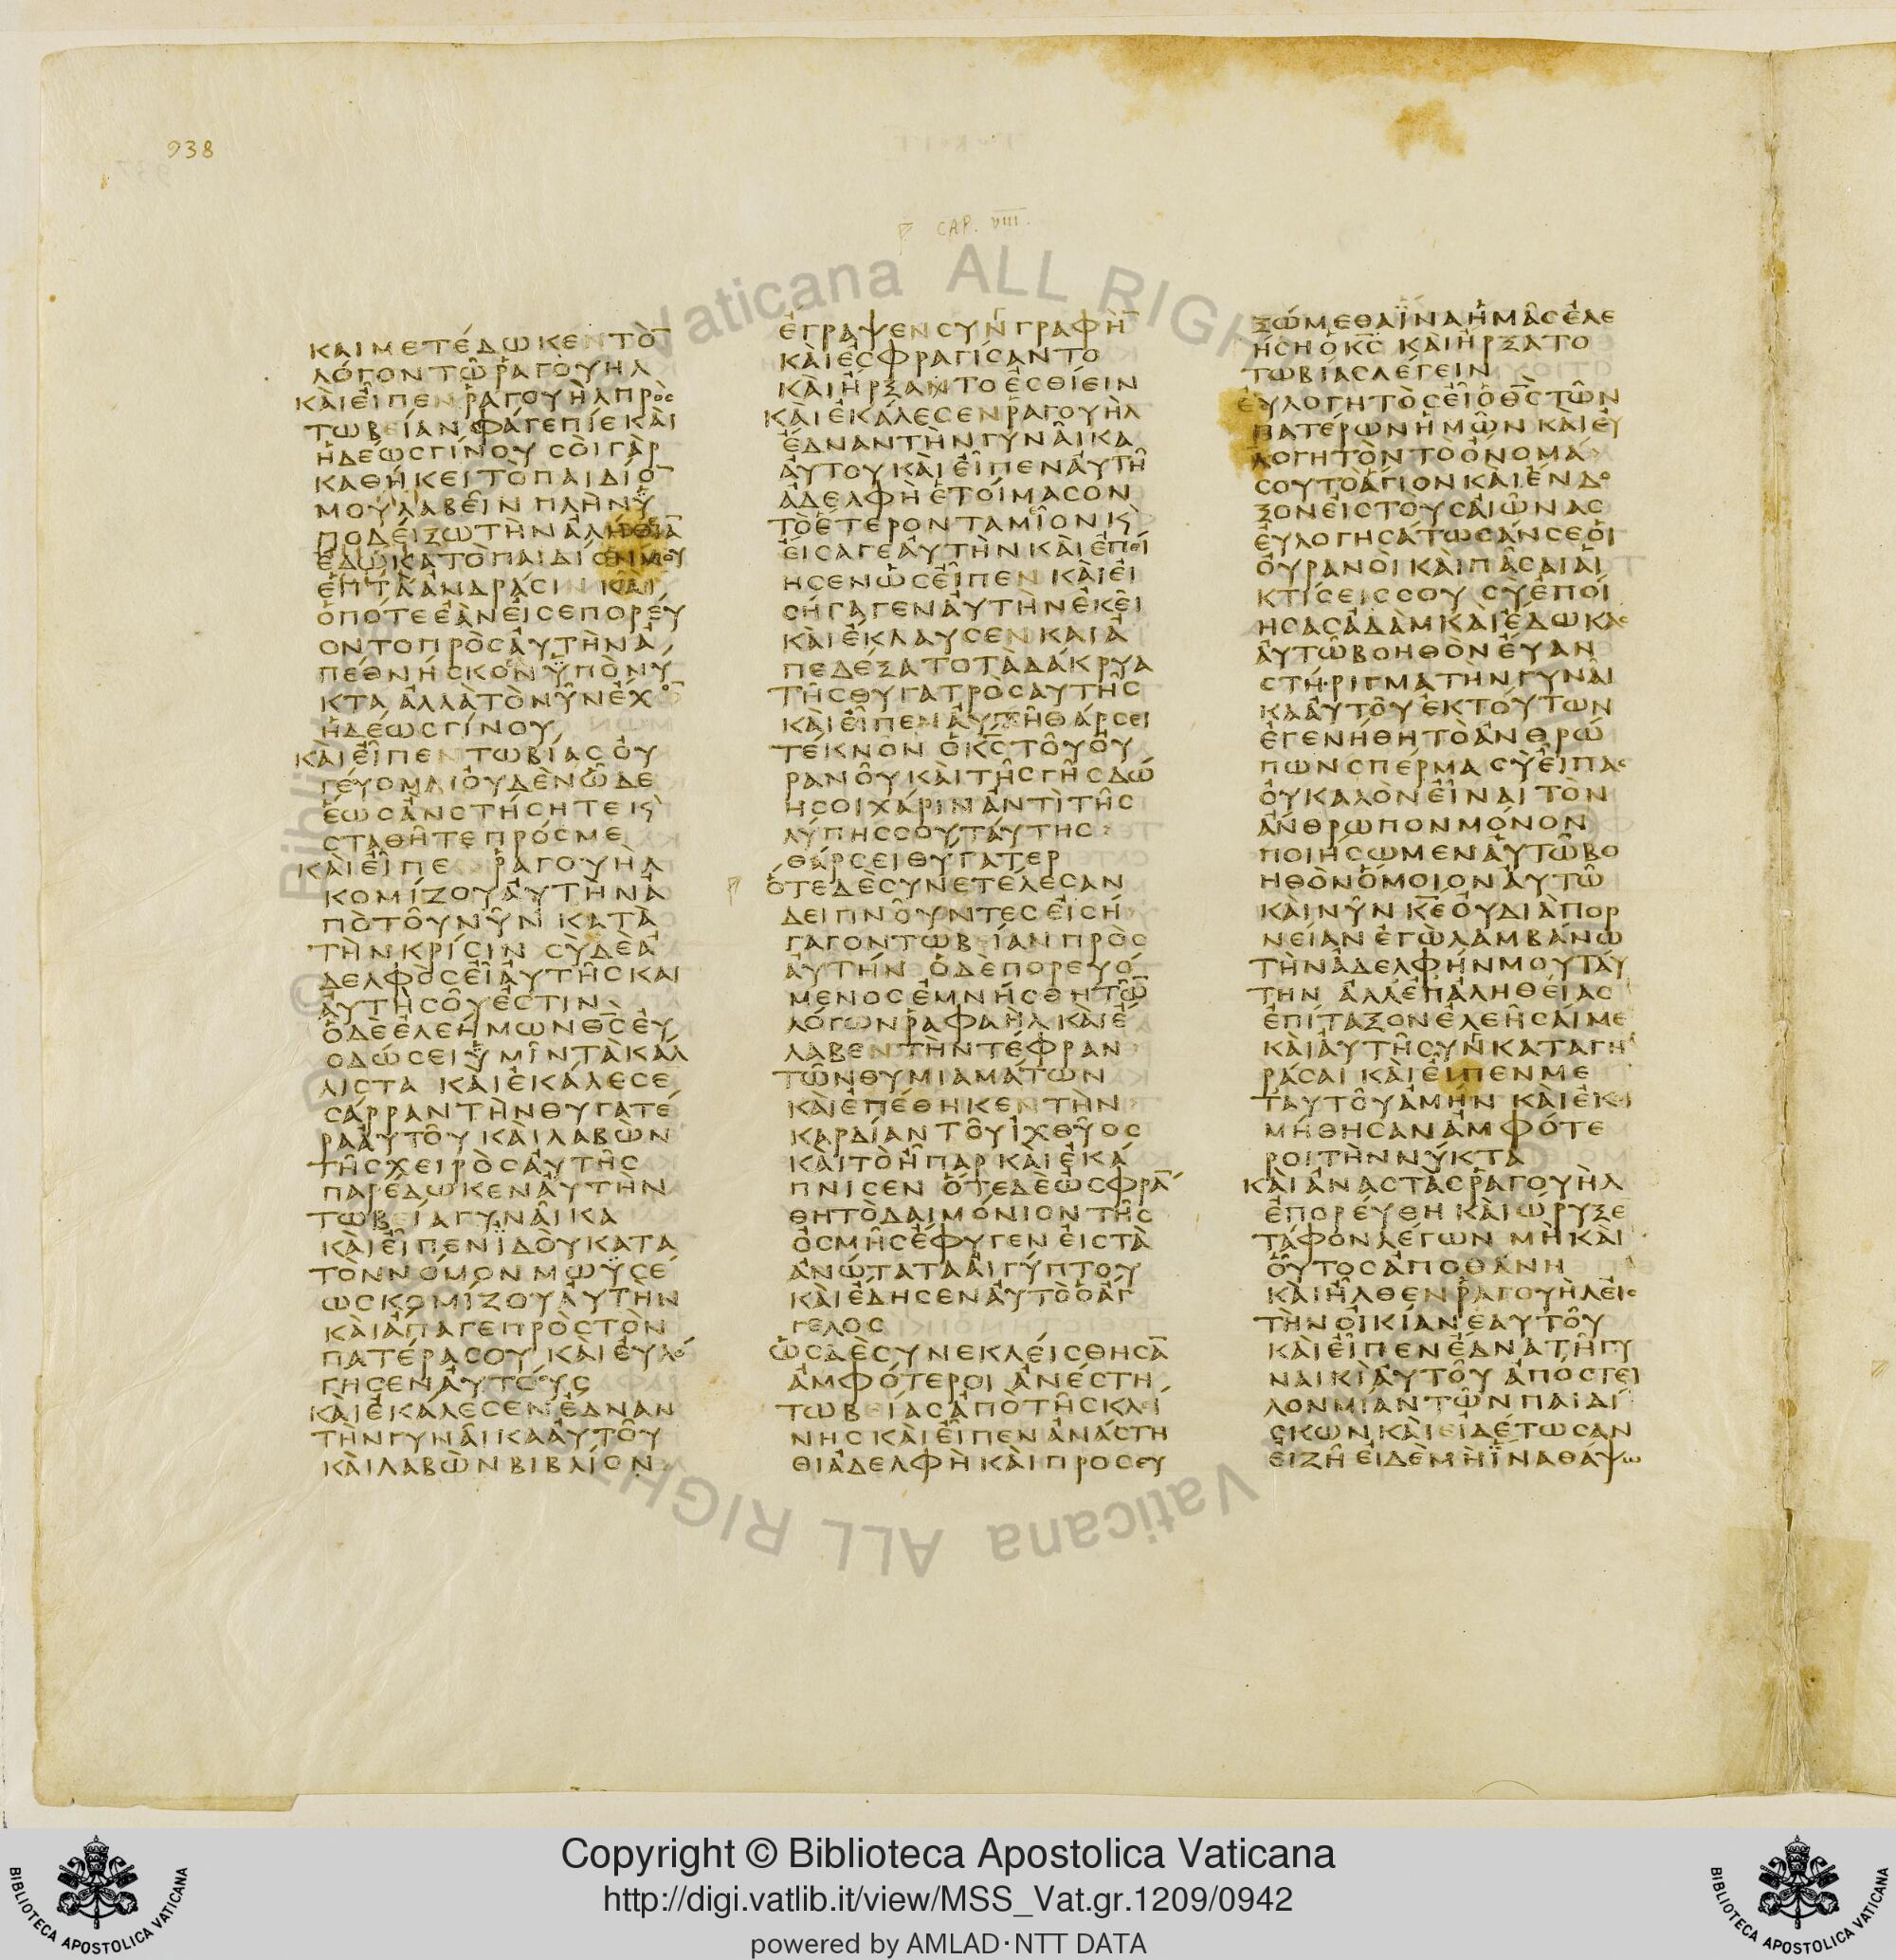 938
CAP. VIII.
ΚΑΙΜΕΤΕΔΩΚΕΝΤΟ̅
ΛΟΓΟΝΤΩΡΑΓΟΥΗΛ
ΚΑΙΕΙΠΕΝΡΑΓΟΥΗΛΠΡΟC
ΤΩΒΕΙΑΝΦΑΓΕΠΙΕΚΑΙ
ΗΔΕΩCΓΙΝΟΥ CΟΙΓΑΡ
ΚΑΘΗΚΕΙΤΟΠΑΙΔΙΟ̅
ΜΟΥΛΑΒΕΙΝ ΠΛΗΝΥ
ΠΟΔΕΙΞΩΤΗΝΑΛΗΘΕΙΑ̅
ΕΔΩΚΑΤΟΠΑΙΔΙΟΝΜΟΥ
ΕΠΤΑΑΝΔΡΑCΙΝ ΚΑΙ
ΟΠΟΤΕΕΑΝΕΙCΕΠΟΡΕΥ
ΟΝΤΟΠΡΟCΑΥΤΗΝΑ
ΠΕΘΝΗCΚΟΝΫΠΟΝΥ
ΚΤΑ ΑΛΛΑΤΟΝΥΝΕΧΟ̅
ΗΔΕΩCΓΙΝΟΥ
ΚΑΙΕΙΠΕΝΤΩΒΙΑCΟΥ
ΓΕΥΟΜΑΙΟΥΔΕΝΩΔΕ
ΕΩCΑΝCΤΗCΗΤΕΚ
CΤΑΘΗΤΕΠΡΟCΜΕ
ΚΑΙΕΙΠΕ ΡΑΓΟΥΗΛ
ΚΟΜΙΖΟΥΑΥΤΗΝΑ
ΠΟΤΟΥΝΥΝ ΚΑΤΑ
ΤΗΝΚΡΙCΙΝ CΥΔΕΑ
ΔΕΛΦΟCΕΙΑΥΤΗCΚΑΙ
ΑΥΤΗCΟΥΕCΤΙΝ
ΟΔΕΕΛΕΗΜΩΝΘ̅C̅ΕΥ
ΟΔΩCΕΙΥΜΙΝΤΑΚΑΛ
ΛΙCΤΑ ΚΑΙΕΚΑΛΕCΕ
CΑΡΡΑΝΤΗΝΘΥΓΑΤΕ
ΡΑΑΥΤΟΥ ΚΑΙΛΑΒΩΝ
ΤΗCΧΕΙΡΟCΑΥΤΗC
ΠΑΡΕΔΩΚΕΝΑΥΤΗΝ
ΤΩΒΕΙΑΓΥΝΑΙΚΑ
ΚΑΙΕΙΠΕΝΪΔΟΥΚΑΤΑ
ΤΟΝΝΟΜΟΝΜΩΥCΕ
ΩCΚΟΜΙΖΟΥΑΥΤΗΝ
ΚΑΙΑΠΑΓΕΠΡΟCΤΟΝ
ΠΑΤΕΡΑCΟΥ ΚΑΙΕΥΛΟ
ΓΗCΕΝΑΥΤΟΥC
ΚΑΙΕΚΑΛΕCΕΝΕΔΝΑΝ
ΤΗΝΓΥΝΑΙΚΑΑΥΤΟΥ
ΚΑΙΛΑΒΩΝΒΙΒΛΙΟΝ
ΕΓΡΑΨΕΝCΥΝΓΡΑΦΗ̅
ΚΑΙΕCΦΡΑΓΙCΑΝΤΟ
ΚΑΙΗΡΞΑΝΤΟΕCΘΙΕΙΝ
ΚΑΙΕΚΑΛΕCΕΝΡΑΓΟΥΗΛ
ΕΔΝΑΝΤΗΝΓΥΝΑΙΚΑ
ΑΥΤΟΥΚΑΙΕΙΠΕΝΑΥΤΗ
ΑΔΕΛΦΗΕΤΟΙΜΑCΟΝ
ΤΟΕΤΕΡΟΝΤΑΜΙΟΝΚ
ΕΙCΑΓΕΑΥΤΗΝΚΑΙΕΠΟΙ
ΗCΕΝΩCΕΙΠΕΝ ΚΑΙΕΙ
CΗΓΑΓΕΝΑΥΤΗΝΕΚΕΙ
ΚΑΙΕΚΛΑΥCΕΝΚΑΙΑ
ΠΕΔΕΞΑΤΟΤΑΔΑΚΡΥΑ
ΤΗCΘΥΓΑΤΡΟCΑΥΤΗC
ΚΑΙΕΙΠΕΝΑΥΤΗΘΑΡCΕΙ
ΤΕΚΝΟΝ ΟΚ̅C̅ΤΟΥΟΥ
ΡΑΝΟΥΚΑΙΤΗCΓΗCΔΩ
ΗCΟΙΧΑΡΙΝΑΝΤΙΤΗC
ΛΥΠΗCCΟΥΤΑΥΤΗC
ΘΑΡCΕΙΘΥΓΑΤΕΡ
ΟΤΕΔΕCΥΝΕΤΕΛΕCΑΝ
ΔΕΙΠΝΟΥΝΤΕCΕΙCΗ
ΓΑΓΟΝΤΩΒΕΙΑΝΠΡΟC
ΑΥΤΗΝ ΟΔΕΠΟΡΕΥΟ
ΜΕΝΟCΕΜΝΗCΘΗΤΩ̅
ΛΟΓΩΝΡΑΦΑΗΛΚΑΙΕ
ΛΑΒΕΝΤΗΝΤΕΦΡΑΝ
ΤΩΝΘΥΜΙΑΜΑΤΩΝ
ΚΑΙΕΠΕΘΗΚΕΝΤΗΝ
ΚΑΡΔΙΑΝΤΟΥΙΧΘΥΟC
ΚΑΙΤΟΗΠΑΡΚΑΙΕΚΑ
ΠΝΙCΕΝ ΟΤΕΔΕΩCΦΡΑ̅
ΘΗΤΟΔΑΙΜΟΝΙΟΝΤΗC
ΟCΜΗCΕΦΥΓΕΝΕΙCΤΑ
ΑΝΩΤΑΤΑΑΙΓΥΠΤΟΥ
ΚΑΙΕΔΗCΕΝΑΥΤΟΟΑΓ
ΓΕΛΟC
ΩCΔΕCΥΝΕΚΛΕΙCΘΗCΑ̅
ΑΜΦΟΤΕΡΟΙ ΑΝΕCΤΗ
ΤΩΒΕΙΑCΑΠΟΤΗCΚΛΙ
ΝΗC ΚΑΙΕΙΠΕΝΑΝΑCΤΗ
ΘΙΑΔΕΛΦΗΚΑΙΠΡΟCΕΥ
ΞΩΜΕΘΑΪΝΑΗΜΑCΕΛΕ
ΗCΗΟΚ̅C̅ ΚΑΙΗΡΞΑΤΟ
ΤΩΒΙΑCΛΕΓΕΙΝ
ΕΥΛΟΓΗΤΟCΕΙΟΘ̅C̅ΤΩΝ
ΠΑΤΕΡΩΝΗΜΩΝ ΚΑΙΕΥ
ΛΟΓΗΤΟΝΤΟΟΝΟΜΑ
CΟΥΤΟΑΓΙΟΝΚΑΙΕΝΔΟ
ΞΟΝΕΙCΤΟΥCΑΙΩΝΑC
ΕΥΛΟΓΗCΑΤΩCΑΝCΕΟΙ
ΟΥΡΑΝΟΙΚΑΙΠΑCΑΙΑΙ
ΚΤΙCΕΙCCΟΥ CΥΕΠΟΙ
ΗCΑCΑΔΑΜΚΑΙΕΔΩΚΑC
ΑΥΤΩΒΟΗΘΟΝΕΥΑΝ
CΤΗΡΙΓΜΑΤΗΝΓΥΝΑΙ
ΚΑΑΥΤΟΥΕΚΤΟΥΤΩΝ
ΕΓΕΝΗΘΗΤΟΑΝΘΡΩ
ΠΩΝCΠΕΡΜΑCΥΕΙΠΑC
ΟΥΚΑΛΟΝΕΙΝΑΙΤΟΝ
ΑΝΘΡΩΠΟΝΜΟΝΟΝ
ΠΟΙΗCΩΜΕΝΑΥΤΩΒΟ
ΗΘΟΝΟΜΟΙΟΝΑΥΤΩ
ΚΑΙΝΥΝΚ̅Ε̅ΟΥΔΙΑΠΟΡ
ΝΕΙΑΝΕΓΩΛΑΜΒΑΝΩ
ΤΗΝΑΔΕΛΦΗΝΜΟΥΤΑΥ
ΤΗΝ ΑΛΛΕΠΑΛΗΘΕΙΑC
ΕΠΙΤΑΞΟΝΕΛΕΗCΑΙΜΕ
ΚΑΙΑΥΤΗCΥΝΚΑΤΑΓΗ
ΡΑCΑΙ ΚΑΙΕΙΠΕΝΜΕ
ΤΑΥΤΟΥΑΜΗΝ ΚΑΙΕΚΟΙ
ΜΗΘΗCΑΝΑΜΦΟΤΕ
ΡΟΙΤΗΝΝΥΚΤΑ
ΚΑΙΑΝΑCΤΑCΡΑΓΟΥΗΛ
ΕΠΟΡΕΥΘΗΚΑΙΩΡΥΞΕ
ΤΑΦΟΝΛΕΓΩΝ ΜΗΚΑΙ
ΟΥΤΟCΑΠΟΘΑΝΗ
ΚΑΙΗΛΘΕΝΡΑΓΟΥΗΛΕΙC
ΤΗΝΟΙΚΙΑΝΕΑΥΤΟΥ
ΚΑΙΕΙΠΕΝΕΔΝΑΤΗΓΥ
ΝΑΙΚΙΑΥΤΟΥ ΑΠΟCΤΕΙ
ΛΟΝΜΙΑΝΤΩΝΠΑΙΔΙ
CΚΩΝΚΑΙΕΙΔΕΤΩCΑΝ
ΕΙΖΗΕΙΔΕΜΗΪΝΑΘΑΨΩ
Copyright © Biblioteca Apostolica Vaticana
http://digi.vatlib.it/view/MSS_Vat.gr.1209/0942
powered by AMLAD·NTT DATA
BIBLIOTECA APOSTOLICA VATICANA
BIBLIOTECA APOSTOLICA VATICANA